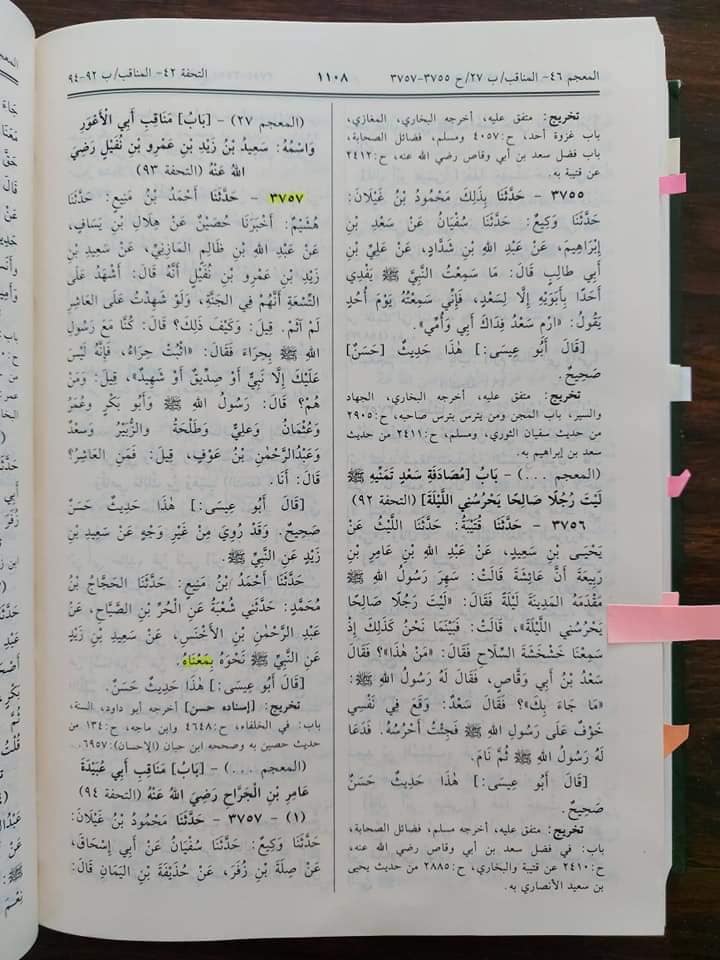 المعجم ٤٦- المناقب/ ب ٢٧/ح ٣٧٥٥-٣٧٥٧
١١٠٨
التحفة ٤٢- المناقب/ ب ٩٢-٩٤
تخريج: متفق عليه، أخرجه البخاري، المغازي،
باب غزوة أحد، ح:٤٠٥٧ ومسلم، فضائل الصحابة،
باب فضل سعد بن أبي وقاص رضي الله عنه، ح:٢٤١٢
عن قتيبة به.
٣٧٥٥ - حَدَّثَنَا بِذَلِكَ مَحْمُودُ بْنُ غَيْلَانَ:
حَدَّثَنَا وَكِيعٌ: حَدَّثَنَا سُفْيَانُ عَنْ سَعْدِ بْنِ
إِبْرَاهِيمَ، عَنْ عَبْدِ اللهِ بْنِ شَدَّادٍ، عَنْ عَلِيِّ بْنِ
أَبِي طَالِبٍ قَالَ: مَا سَمِعْتُ النَّبِيَّ ﷺ يَفْدِي
أَحَدًا بِأَبَوَيْهِ إِلَّا لِسَعْدٍ، فَإِنِّي سَمِعْتُهُ يَوْمَ أُحُدٍ
يَقُولُ: «ارْمِ سَعْدُ فِدَاكَ أَبِي وَأُمِّي».
[قَالَ أَبُو عِيسَى:] هٰذَا حَدِيثٌ [حَسَنٌ]
صَحِيحٌ.
تخريج: متفق عليه، أخرجه البخاري، الجهاد
والسير، باب المجن ومن يترس بترس صاحبه، ح:٢٩٠٥
من حديث سفيان الثوري، ومسلم، ح:٢٤١١ من حديث
سعد بن إبراهيم به.
(المعجم . . .) - بَابُ [مُصَادَقَةِ سَعْدٍ تَمَنِّيهِ ﷺ
لَيْتَ رَجُلًا صَالِحًا يَحْرُسُنِي اللَّيْلَةَ] (التحفة ٩٢)
٣٧٥٦ - حَدَّثَنَا قُتَيْبَةُ: حَدَّثَنَا اللَّيْثُ عَنْ
يَحْيَى بْنِ سَعِيدٍ، عَنْ عَبْدِ اللهِ بْنِ عَامِرِ بْنِ
رَبِيعَةَ أَنَّ عَائِشَةَ قَالَتْ: سَهِرَ رَسُولُ اللهِ ﷺ
مَقْدَمَهُ الْمَدِينَةَ لَيْلَةً فَقَالَ: «لَيْتَ رَجُلًا صَالِحًا
يَحْرُسُنِي اللَّيْلَةَ»، قَالَتْ: فَبَيْنَمَا نَحْنُ كَذَلِكَ إِذْ
سَمِعْنَا خَشْخَشَةَ السِّلَاحِ فَقَالَ: «مَنْ هٰذَا»؟ فَقَالَ
سَعْدُ بْنُ أَبِي وَقَّاصٍ، فَقَالَ لَهُ رَسُولُ اللهِ ﷺ:
«مَا جَاءَ بِكَ»؟ فَقَالَ سَعْدٌ: وَقَعَ فِي نَفْسِي
خَوْفٌ عَلَى رَسُولِ اللهِ ﷺ فَجِئْتُ أَحْرُسُهُ. فَدَعَا
لَهُ رَسُولُ اللهِ ﷺ ثُمَّ نَامَ.
[قَالَ أَبُو عِيسَى:] هٰذَا حَدِيثٌ حَسَنٌ
صَحِيحٌ.
تخريج: متفق عليه، أخرجه مسلم، فضائل الصحابة،
باب: في فضل سعد بن أبي وقاص رضي الله عنه،
ح:٢٤١٠ عن قتيبة والبخاري، ح:٢٨٨٥ من حديث يحيى
بن سعيد الأنصاري به.
(المعجم ٢٧) - [بَابُ] مَنَاقِبِ أَبِي الْأَعْوَرِ
وَاسْمُهُ: سَعِيدُ بْنُ زَيْدِ بْنِ عَمْرِو بْنِ نُفَيْلٍ رَضِيَ
اللهُ عَنْهُ (التحفة ٩٣)
٣٧٥٧ - حَدَّثَنَا أَحْمَدُ بْنُ مَنِيعٍ: حَدَّثَنَا
هُشَيْمٌ: أَخْبَرَنَا حُصَيْنٌ عَنْ هِلَالِ بْنِ يَسَافٍ،
عَنْ عَبْدِ اللهِ بْنِ ظَالِمٍ الْمَازِنِيِّ، عَنْ سَعِيدِ بْنِ
زَيْدِ بْنِ عَمْرِو بْنِ نُفَيْلٍ أَنَّهُ قَالَ: أَشْهَدُ عَلَى
التِّسْعَةِ أَنَّهُمْ فِي الْجَنَّةِ، وَلَوْ شَهِدْتُ عَلَى الْعَاشِرِ
لَمْ آثَمْ. قِيلَ: وَكَيْفَ ذَلِكَ؟ قَالَ: كُنَّا مَعَ رَسُولِ
اللهِ ﷺ بِحِرَاءَ، فَقَالَ: «اثْبُتْ حِرَاءُ، فَإِنَّهُ لَيْسَ
عَلَيْكَ إِلَّا نَبِيٌّ أَوْ صِدِّيقٌ أَوْ شَهِيدٌ»، قِيلَ: وَمَنْ
هُمْ؟ قَالَ: رَسُولُ اللهِ ﷺ وَأَبُو بَكْرٍ وَعُمَرُ
وَعُثْمَانُ وَعَلِيٌّ وَطَلْحَةُ وَالزُّبَيْرُ وَسَعْدٌ
وَعَبْدُالرَّحْمٰنِ بْنُ عَوْفٍ، قِيلَ: فَمَنِ الْعَاشِرُ؟
قَالَ: أَنَا.
[قَالَ أَبُو عِيسَى:] هٰذَا حَدِيثٌ حَسَنٌ
صَحِيحٌ. وَقَدْ رُوِيَ مِنْ غَيْرِ وَجْهٍ عَنْ سَعِيدِ بْنِ
زَيْدٍ عَنِ النَّبِيِّ ﷺ.
حَدَّثَنَا أَحْمَدُ بْنُ مَنِيعٍ: حَدَّثَنَا الْحَجَّاجُ بْنُ
مُحَمَّدٍ: حَدَّثَنِي شُعْبَةُ عَنِ الْحُرِّ بْنِ الصَّيَّاحِ، عَنْ
عَبْدِ الرَّحْمٰنِ بْنِ الْأَخْنَسِ، عَنْ سَعِيدِ بْنِ زَيْدٍ
عَنِ النَّبِيِّ ﷺ نَحْوَهُ بِمَعْنَاهُ.
[قَالَ أَبُو عِيسَى:] هٰذَا حَدِيثٌ حَسَنٌ.
تخريج: [إسناده حسن] أخرجه أبو داود، السنة،
باب: في الخلفاء، ح:٤٦٤٨ وابن ماجه، ح:١٣٤ من
حديث حصين به وصححه ابن حبان (الإحسان):٦٩٥٧.
(المعجم . . . .) - [بَابُ] مَنَاقِبِ أَبِي عُبَيْدَةَ
عَامِرِ بْنِ الْجَرَّاحِ رَضِيَ اللهُ عَنْهُ (التحفة ٩٤)
(١) - ٣٧٥٧ - حَدَّثَنَا مَحْمُودُ بْنُ غَيْلَانَ:
حَدَّثَنَا وَكِيعٌ: حَدَّثَنَا سُفْيَانُ عَنْ أَبِي إِسْحَاقَ،
عَنْ صِلَةَ بْنِ زُفَرَ، عَنْ حُذَيْفَةَ بْنِ الْيَمَانِ قَالَ: